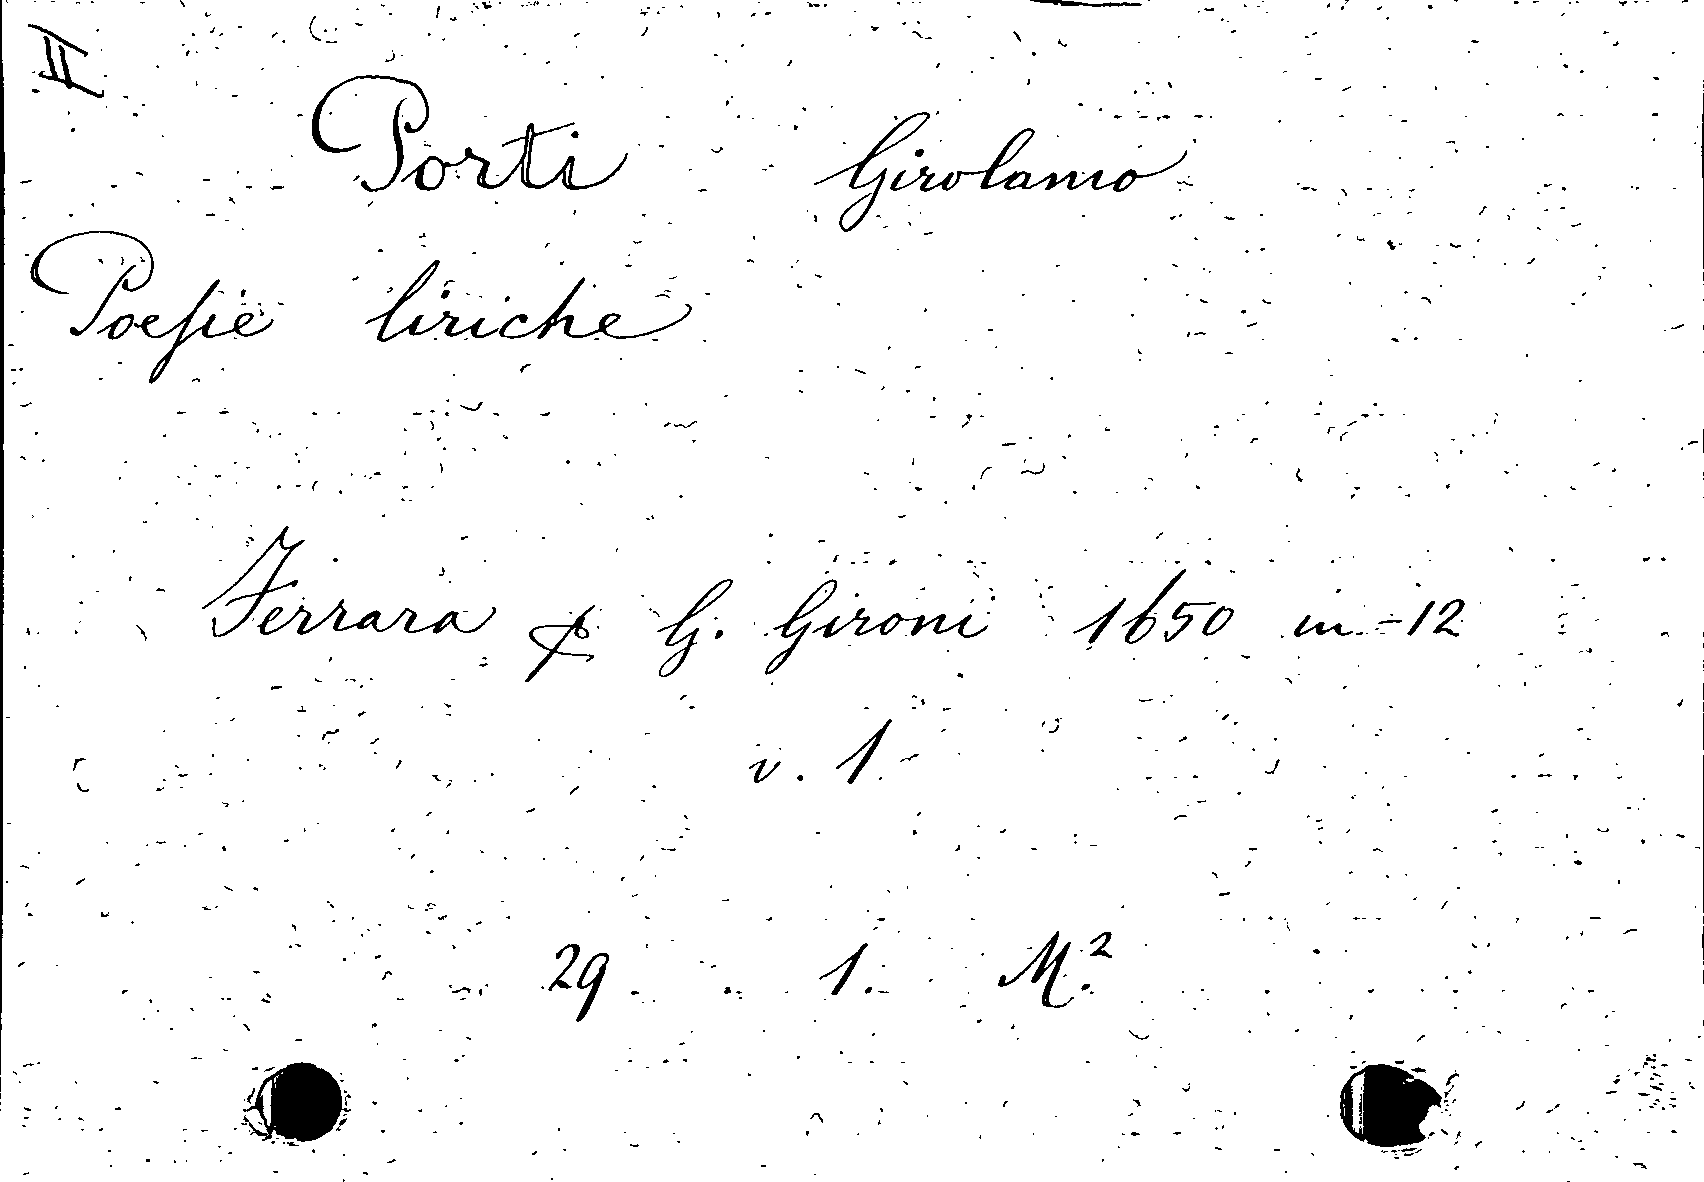 II
Porti Girolamo
Poesie liriche
Ferrara & G. Gironi 1650 in-12
v. 1.
29 . 1. M.²